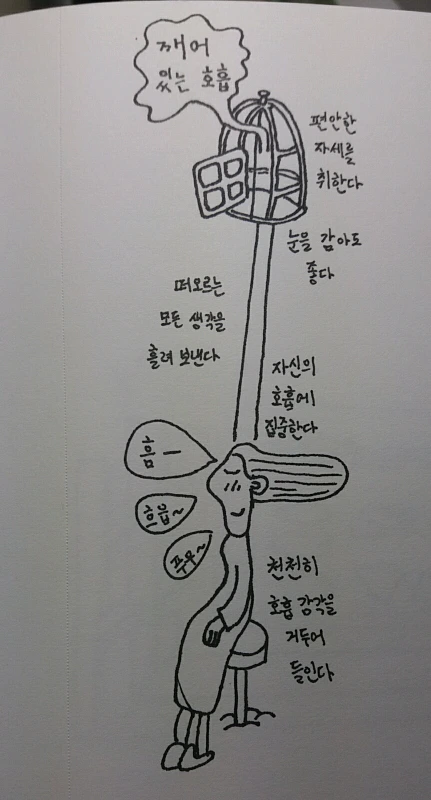 깨어
있는 호흡
편안한
자세를
취한다
눈을 감아도
좋다
떠오르는
모든 생각을
흘려 보낸다
자신의
호흡에
집중한다
흠ㅡ
흐읍~
푸우~
천천히
호흡 감각을
거두어
들인다